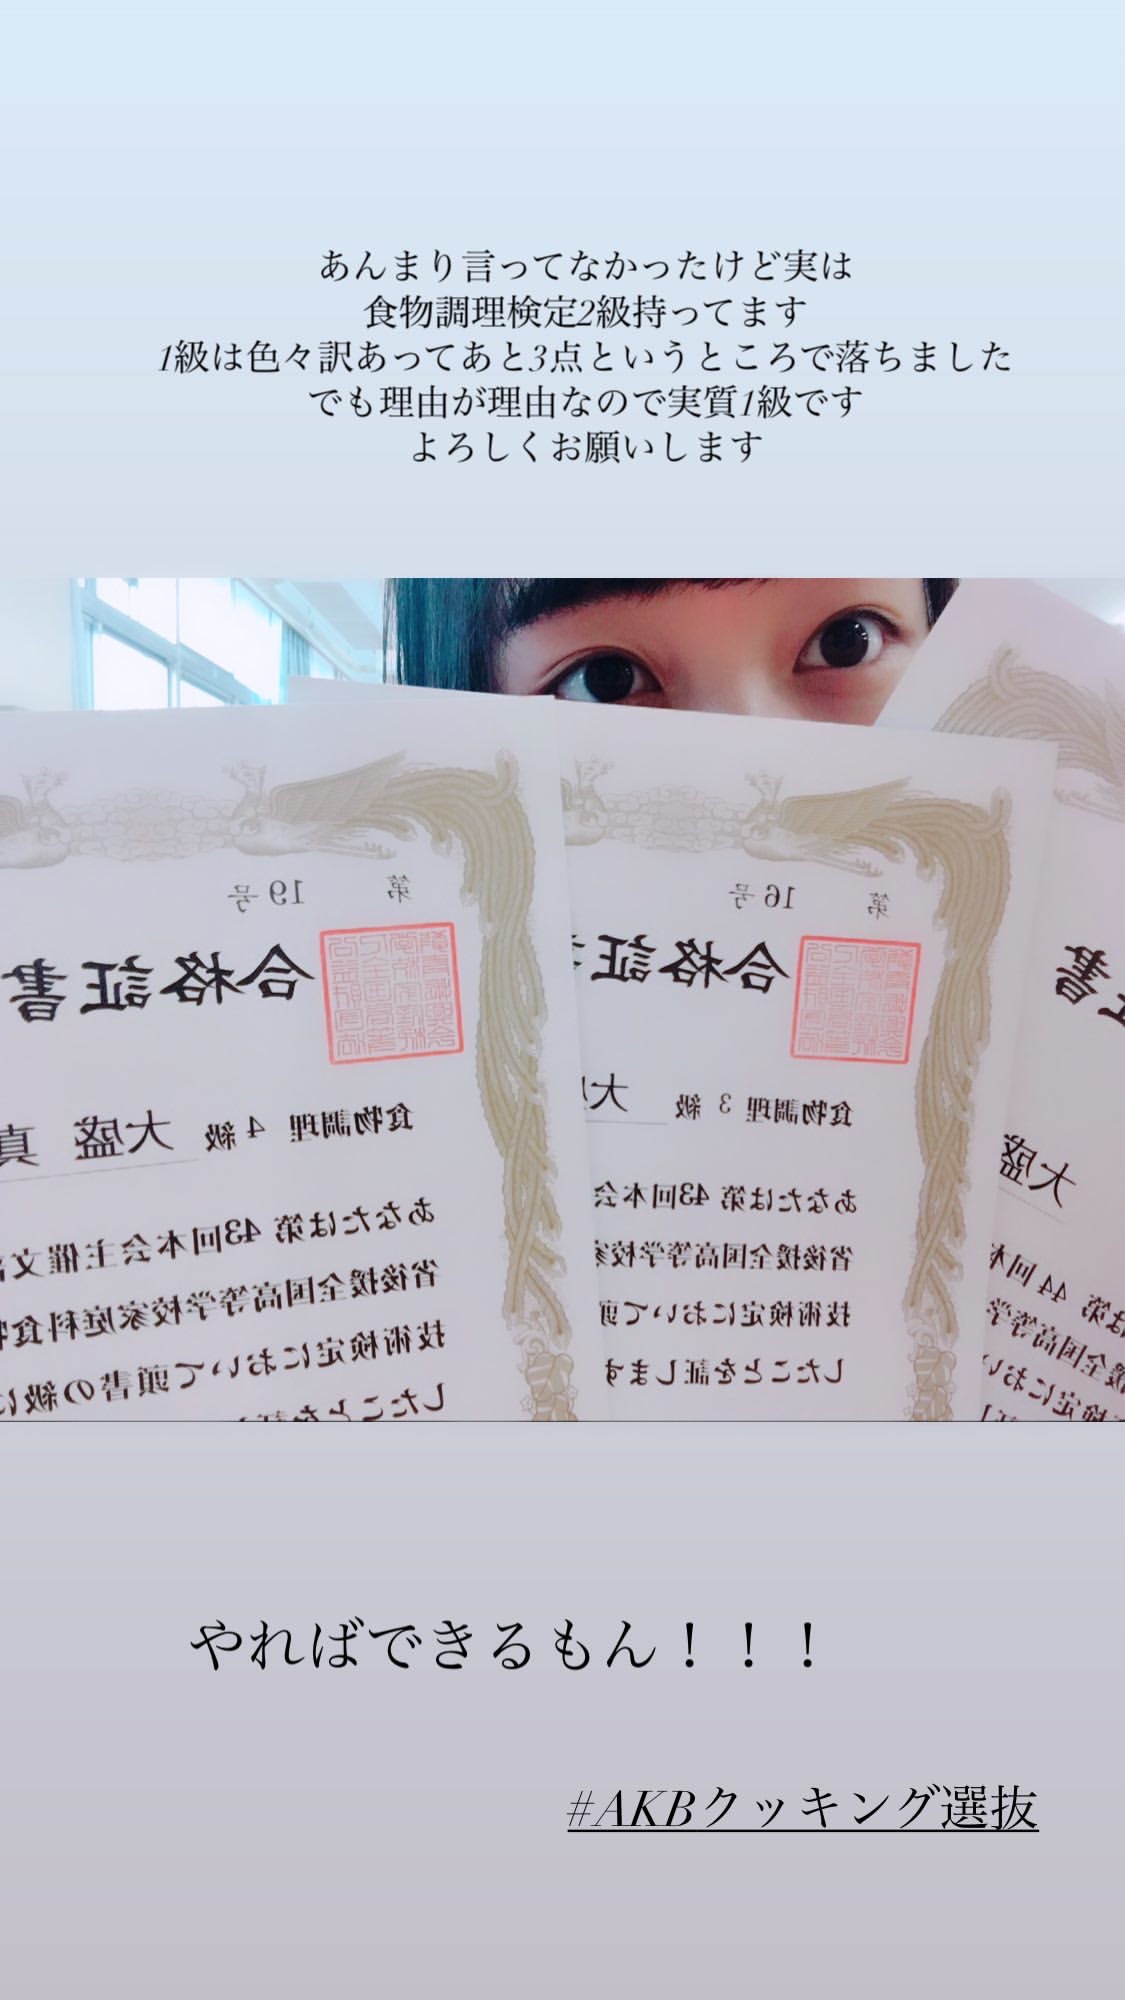 あんまり言ってなかったけど実は
食物調理検定2級持ってます
1級は色々訳あってあと3点というところで落ちました
でも理由が理由なので実質1級です
よろしくお願いします
第 19号
合格証書
食物調理 4級 大盛 真
あなたは第43回本会主催文
省後援全国高等学校家庭科食
技術検定において頭書の級に
したことを証
第 16号
合格証
食物調理 3級 大
あなたは第43回本会
省後援全国高等学校
技術検定において頭
したことを証します
書
大盛
第 44回本
高等学
検定におい
やればできるもん！！！
#AKBクッキング選抜